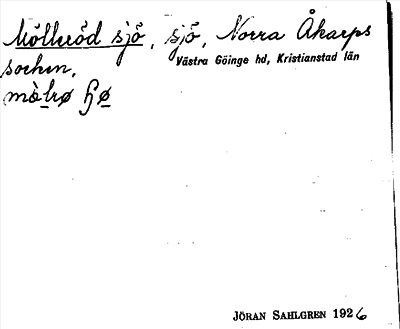 Mölleröd sjö, sjö, Norra Åkarps
Västra Göinge hd, Kristianstad län
socken,
JÖRAN SAHLGREN 1926